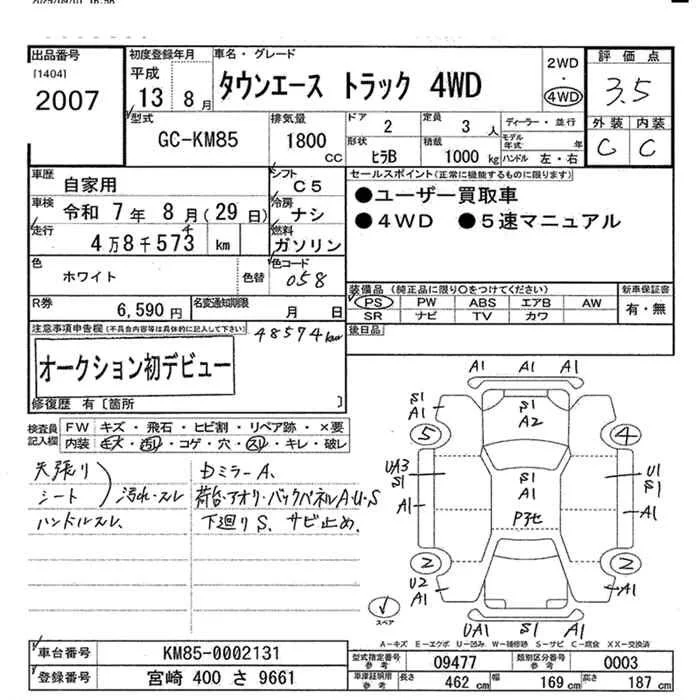 出品番号
[1404]
2007
初度登録年月
平成
13 8月
車名・グレード
タウンエース トラック 4WD
2WD
・
4WD
評価点
3.5
外装 内装
C C
型式
GC-KM85
排気量
1800
CC
ドア
2
定員
3 人
ディーラー・並行
モデル年式 年
形状
ヒラB
積載
1000kg
ハンドル 左・右
車歴
自家用
シフト
C5
車検
令和 7年 8月(29日)
冷房
ナシ
走行
4万8千573 km
燃料
ガソリン
セールスポイント(正常に機能するものに限ります)
●ユーザー買取車
●4WD ●5速マニュアル
色
ホワイト
色替
色コード
058
装備品(純正品に限り○をつけてください)
新車保証書
PS PW ABS エアB AW
SR ナビ TV カワ
有・無
R券
6,590円
名変通知期限
月 日
後日品
注意事項申告欄(不具合内容等は具体的に記入して下さい)
48574km
オークション初デビュー
修復歴 有〔箇所 〕
検査員記入欄
FW キズ・飛石・ヒビ割・リペア跡・×要
内装 キズ・汚レ・コゲ・穴・スレ・キレ・破レ
天張り
シート
汚れ・スレ
ハンドルスレ、
Dミラー A、
荷台・アオリ・バックパネル A・U・S
下廻り S、サビ止め、
A1 A1 A1
S1
A1
S1
A2
5
4
UA3
S1
A1
S1
A1
U1
S1
A1
2
2
U2
A1
A1
UA1 S1 A1
スペア
A-キズ E-エクボ U-凹み W-補修跡 S-サビ C-腐食 XX-交換済
車台番号
KM85-0002131
登録番号
宮崎 400 さ 9661
型式指定番号
参考
09477
類別区分番号
参考
0003
車庫証明用
参考
長さ
462 cm
幅
169 cm
高さ
187 cm